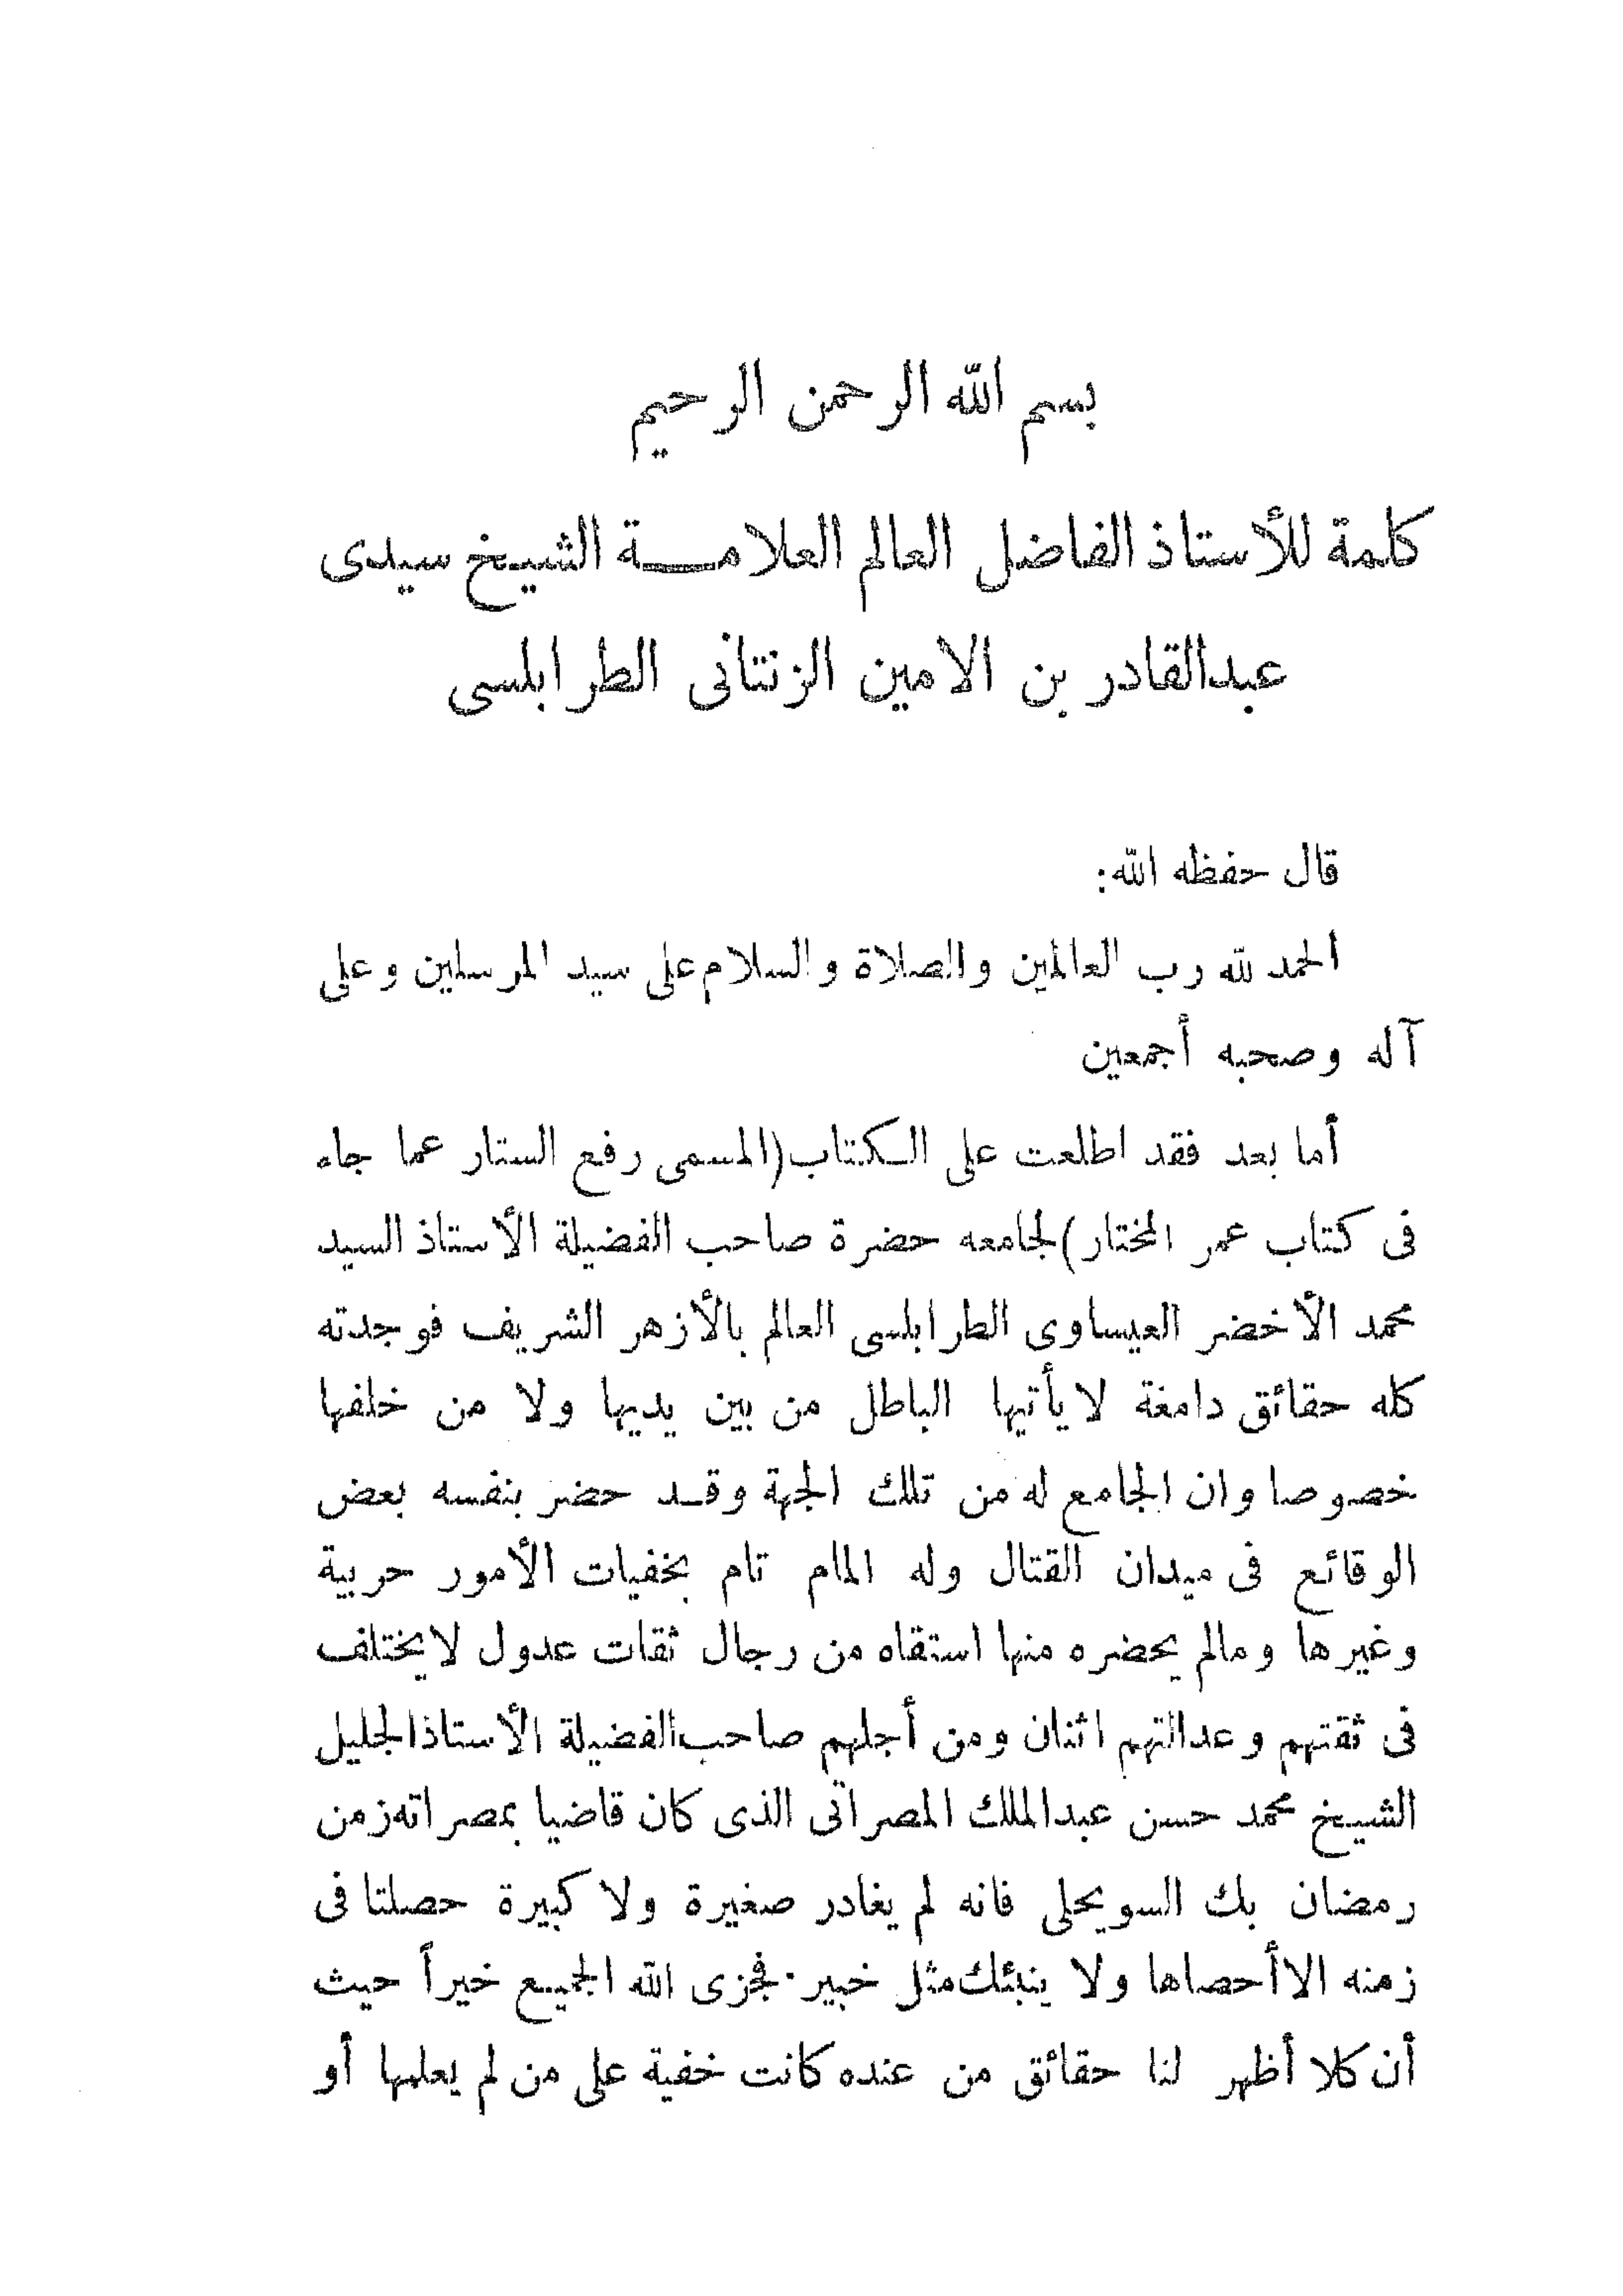 بسم الله الرحمن الرحيم
كلمة للأستاذ الفاضل العالم العلامـــة الشيخ سيدى
عبدالقادر بن الامين الزنتانى الطرابلسى
قال حفظه الله:
الحمد لله رب العالمين والصلاة والسلام على سيد المرسلين وعلى
آله وصحبه أجمعين
أما بعد فقد اطلعت على الكتاب(المسمى رفع الستار عما جاء
فى كتاب عمر المختار)لجامعه حضرة صاحب الفضيلة الأستاذ السيد
محمد الأخضر العيساوى الطرابلسى العالم بالأزهر الشريف فوجدته
كله حقائق دامغة لا يأتيها الباطل من بين يديها ولا من خلفها
خصوصا وان الجامع له من تلك الجهة وقد حضر بنفسه بعض
الوقائع فى ميدان القتال وله المام تام بخفيات الأمور حربية
وغيرها ومالم يحضره منها استقاه من رجال ثقات عدول لا يختلف
فى ثقتهم وعدالتهم اثنان ومن أجلهم صاحب الفضيلة الأستاذ الجليل
الشيخ محمد حسن عبدالملك المصراتى الذى كان قاضيا بمصراته زمن
رمضان بك السويحلى فانه لم يغادر صغيرة ولا كبيرة حصلتا فى
زمنه الا أحصاها ولا ينبئك مثل خبير. فجزى الله الجميع خيراً حيث
أن كلا أظهر لنا حقائق من عنده كانت خفية على من لم يعلمها أو